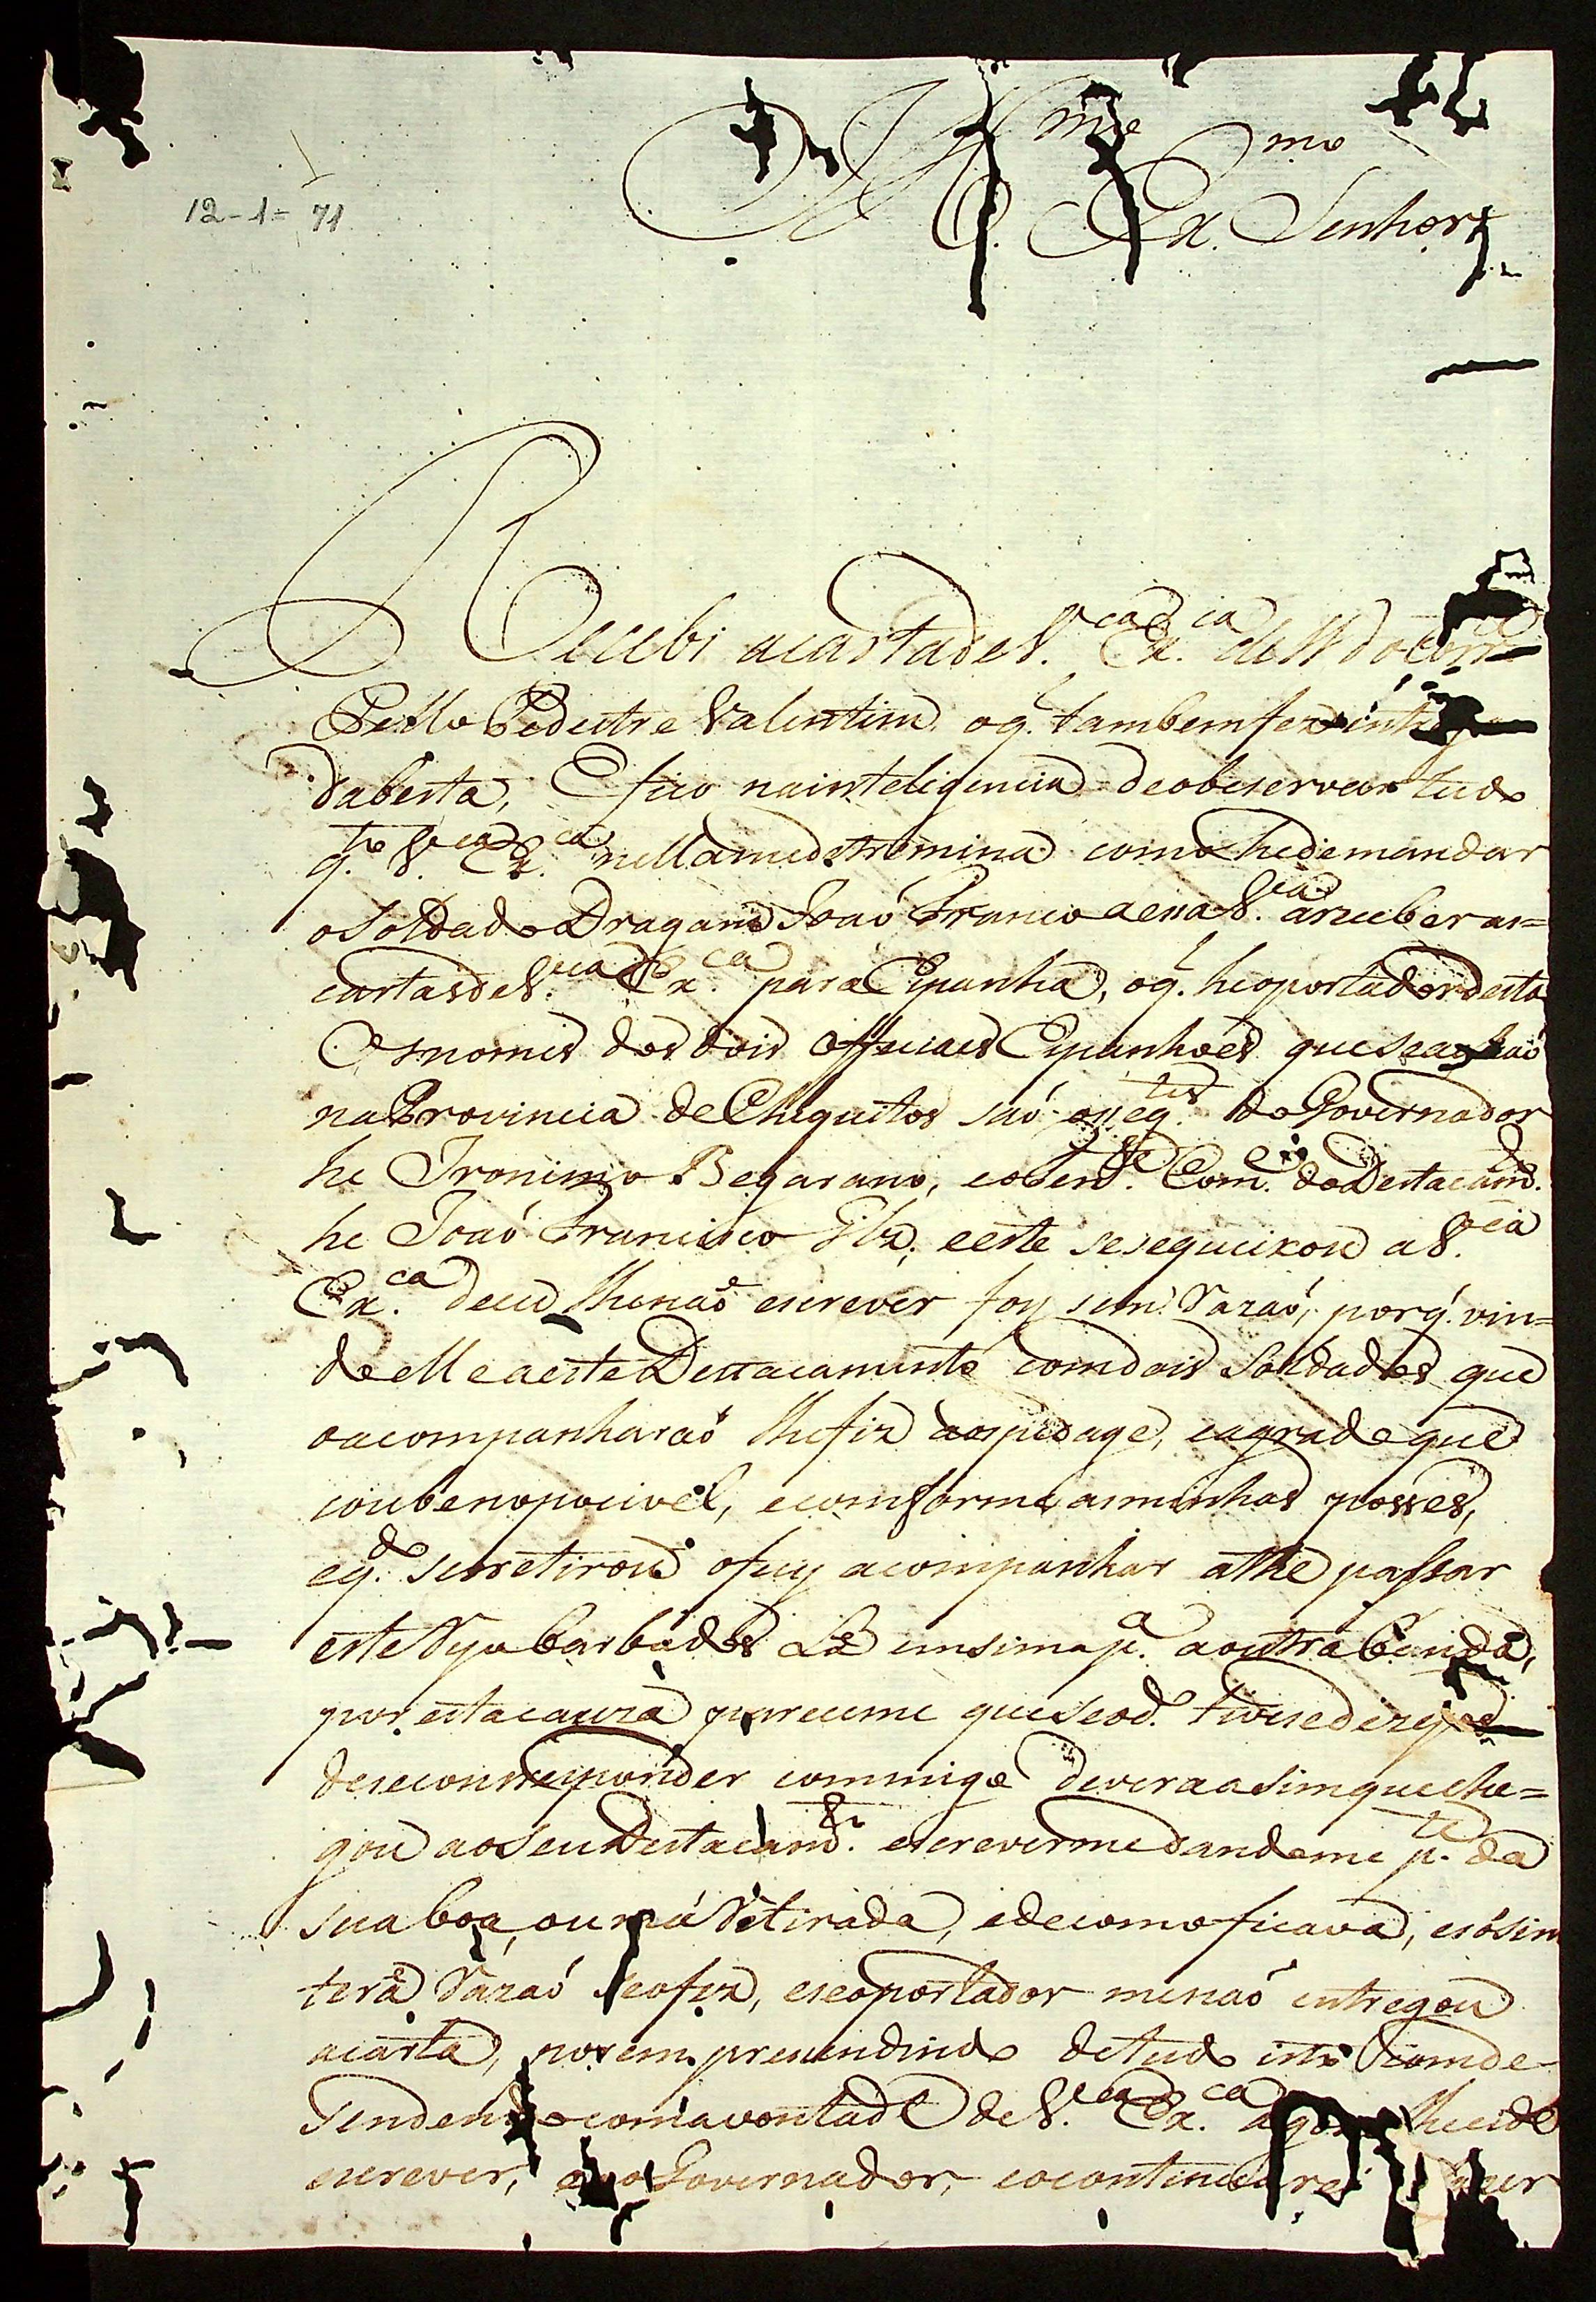 Ill.mo e Ex.mo Senhor
12-1-71
Recebi acartadeV.ca Ex.ca de 11 do corre
Pello Pedestre Valentim. oq. tambemfez intreg
daberta, Efico nainteligencia deobeservar tudo
q.to V.ca Ex.ca nellamedetremina comohedemandar
osoldado Dragam Joaó Franco aessaV.ca areceberas=
cartasdeV.ca Ex.ca para Espanha, oq. heoportadordesta
Osnomes dos dois officiaes Espanhoes queseachaó
naProvincia de Chiquitos saó oseg.tes do Governador
he Jronimo Begarano, eoten.te Com.e doDestacam.to
he Joaó Francisco Glz, eeste sesequeixou aV.ca
Ex.ca deeu lhenaó escrever foy sem razaó, porq. vin=
doelle aeste Destacamento comdois soldados que
oacompanharaó lhefiz aospedage, eagrado que
coubenopocivel, ecomforme asminhas posses,
eq.do seretirou ofuy acompanhar athe passar
este Ryo Barbados Lá emsima p.a aoutra banda,
por estacauza pareceme queseod.o tivesedezejos
desecorresponder commigo deveraasimqueche=
gou aoseuDestacam.to escrevermedandome p.te da
suaboa, oumá Retirada, edecomoficava, esósim
terá razaó seofez, eseoportador menaó entregou
acarta, porem prescendindo detudo isto comde-
sendendocomavontade deV.ca Ex.ca agora lheeide
escrever, eaoGovernador, eocontinuarei